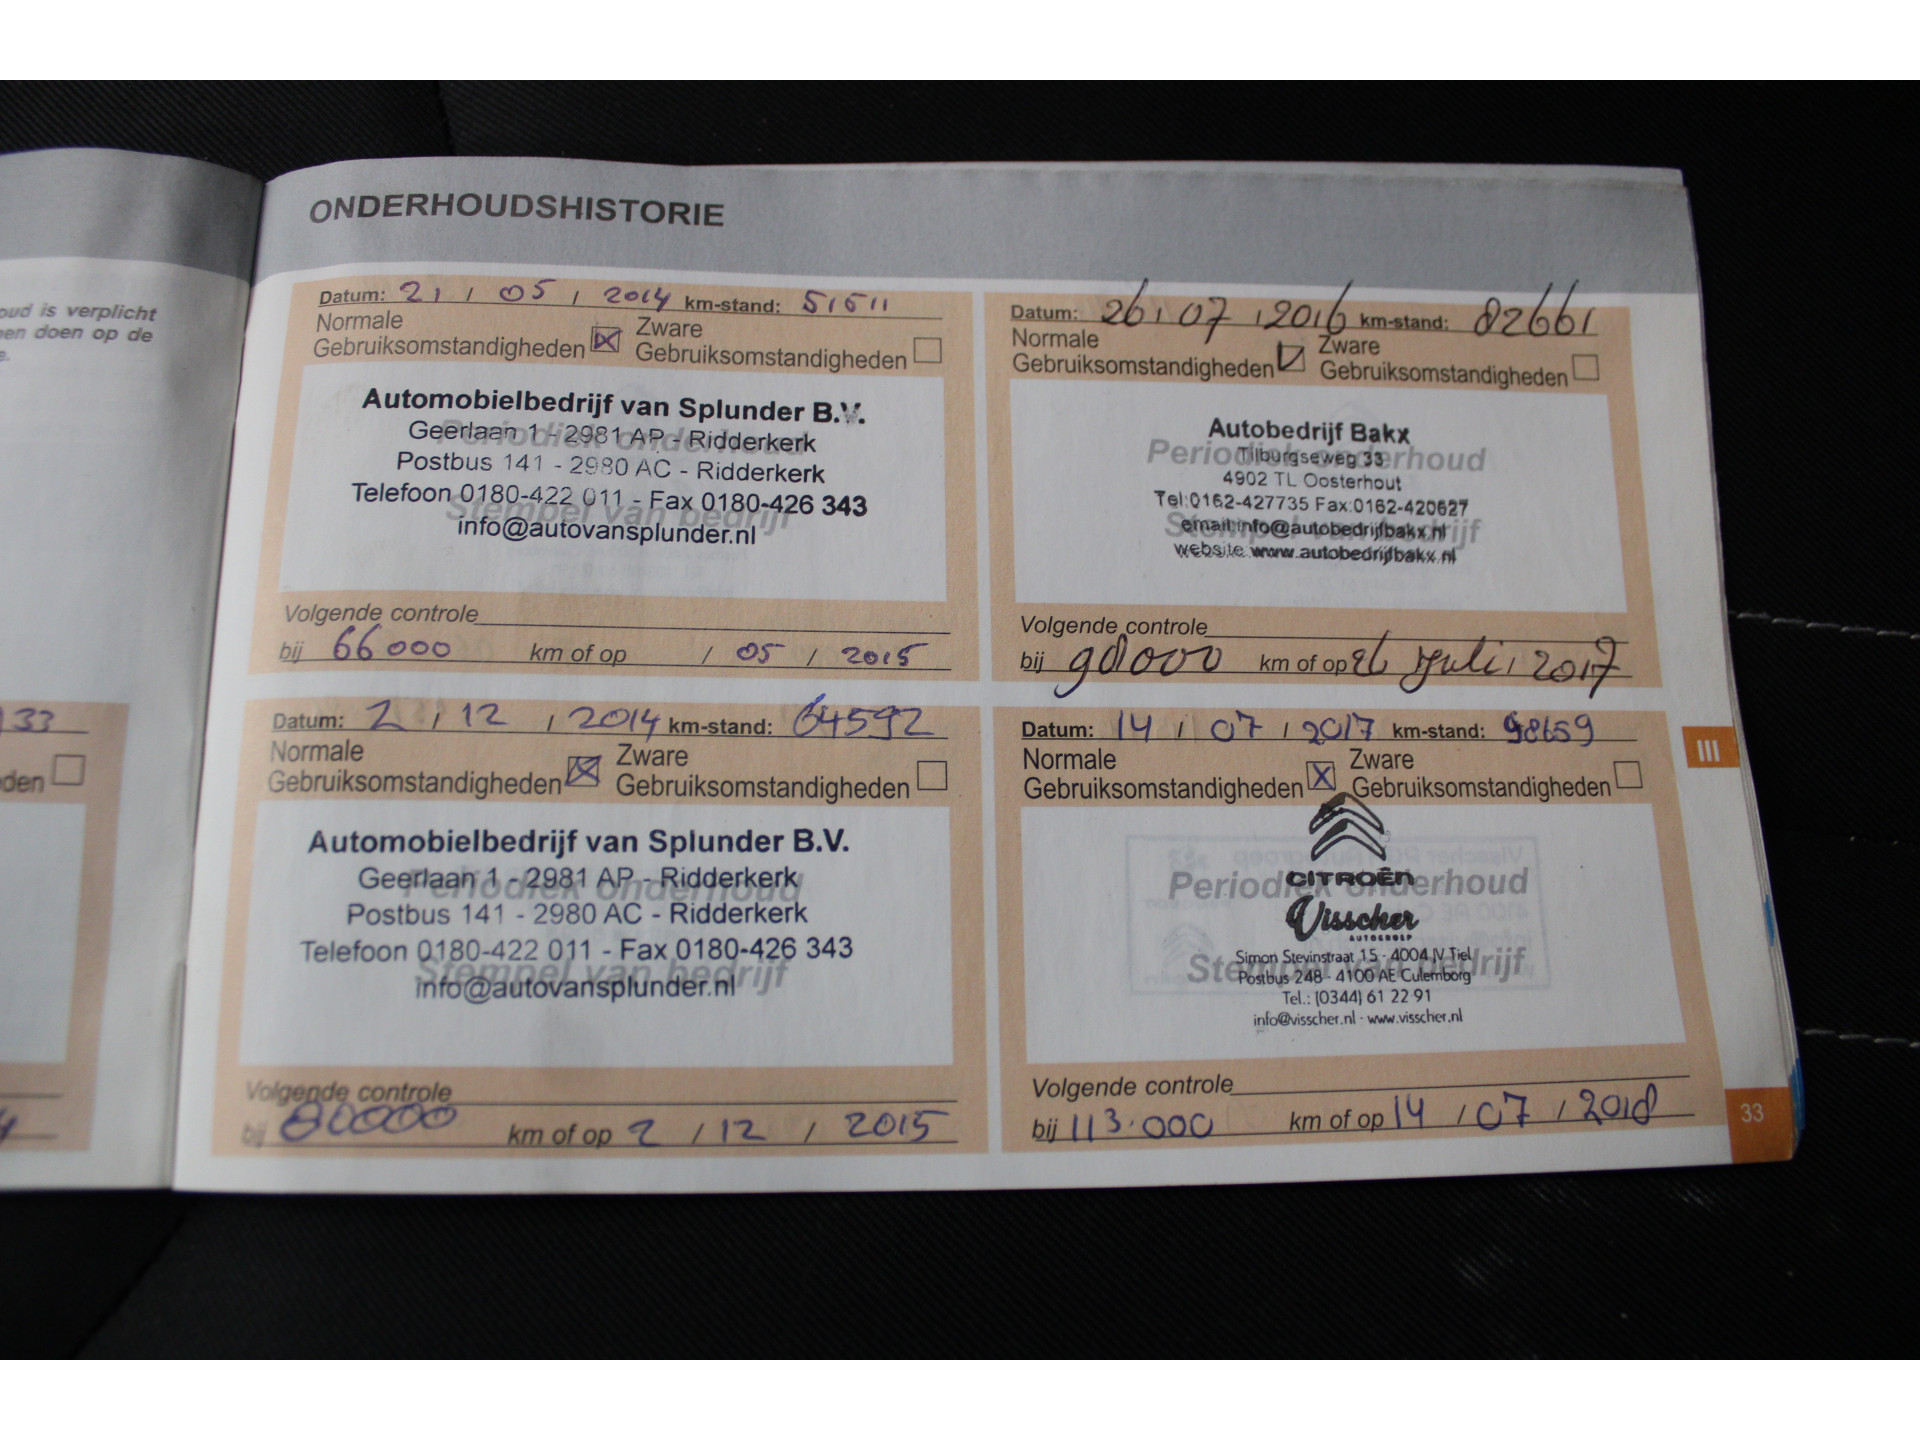 oud is verplicht
en doen op de
e.
133
den
ONDERHOUDSHISTORIE
Datum: 21 / 05 / 2014 km-stand: 51511
Normale Gebruiksomstandigheden ☒ Zware Gebruiksomstandigheden ☐
Periodiek onderhoud
Stempel van bedrijf
Automobielbedrijf van Splunder B.V.
Geerlaan 1 - 2981 AP - Ridderkerk
Postbus 141 - 2980 AC - Ridderkerk
Telefoon 0180-422 011 - Fax 0180-426 343
info@autovansplunder.nl
Volgende controle
bij 66000 km of op / 05 / 2015
Datum: 2 / 12 / 2014 km-stand: 64592
Normale Gebruiksomstandigheden ☒ Zware Gebruiksomstandigheden ☐
Periodiek onderhoud
Stempel van bedrijf
Automobielbedrijf van Splunder B.V.
Geerlaan 1 - 2981 AP - Ridderkerk
Postbus 141 - 2980 AC - Ridderkerk
Telefoon 0180-422 011 - Fax 0180-426 343
info@autovansplunder.nl
Volgende controle
bij 80000 km of op 2 / 12 / 2015
Datum: 26 / 07 / 2016 km-stand: 82661
Normale Gebruiksomstandigheden ☑ Zware Gebruiksomstandigheden ☐
Periodiek onderhoud
Stempel van bedrijf
Autobedrijf Bakx
Tilburgseweg 33
4902 TL Oosterhout
Tel:0162-427735 Fax:0162-420627
email:info@autobedrijfbakx.nl
website www.autobedrijfbakx.nl
Volgende controle
bij km of op 26 juli / 2017
Datum: 14 / 07 / 2017 km-stand: 98659
Normale Gebruiksomstandigheden ☒ Zware Gebruiksomstandigheden ☐
Periodiek onderhoud
Stempel van bedrijf
CITROËN
Visscher
AUTOGROEP
Simon Stevinstraat 15 - 4004 JV Tiel
Postbus 248 - 4100 AE Culemborg
Tel.: (0344) 61 22 91
info@visscher.nl - www.visscher.nl
Volgende controle
bij 113.000 km of op 14 / 07 / 2018
III
33